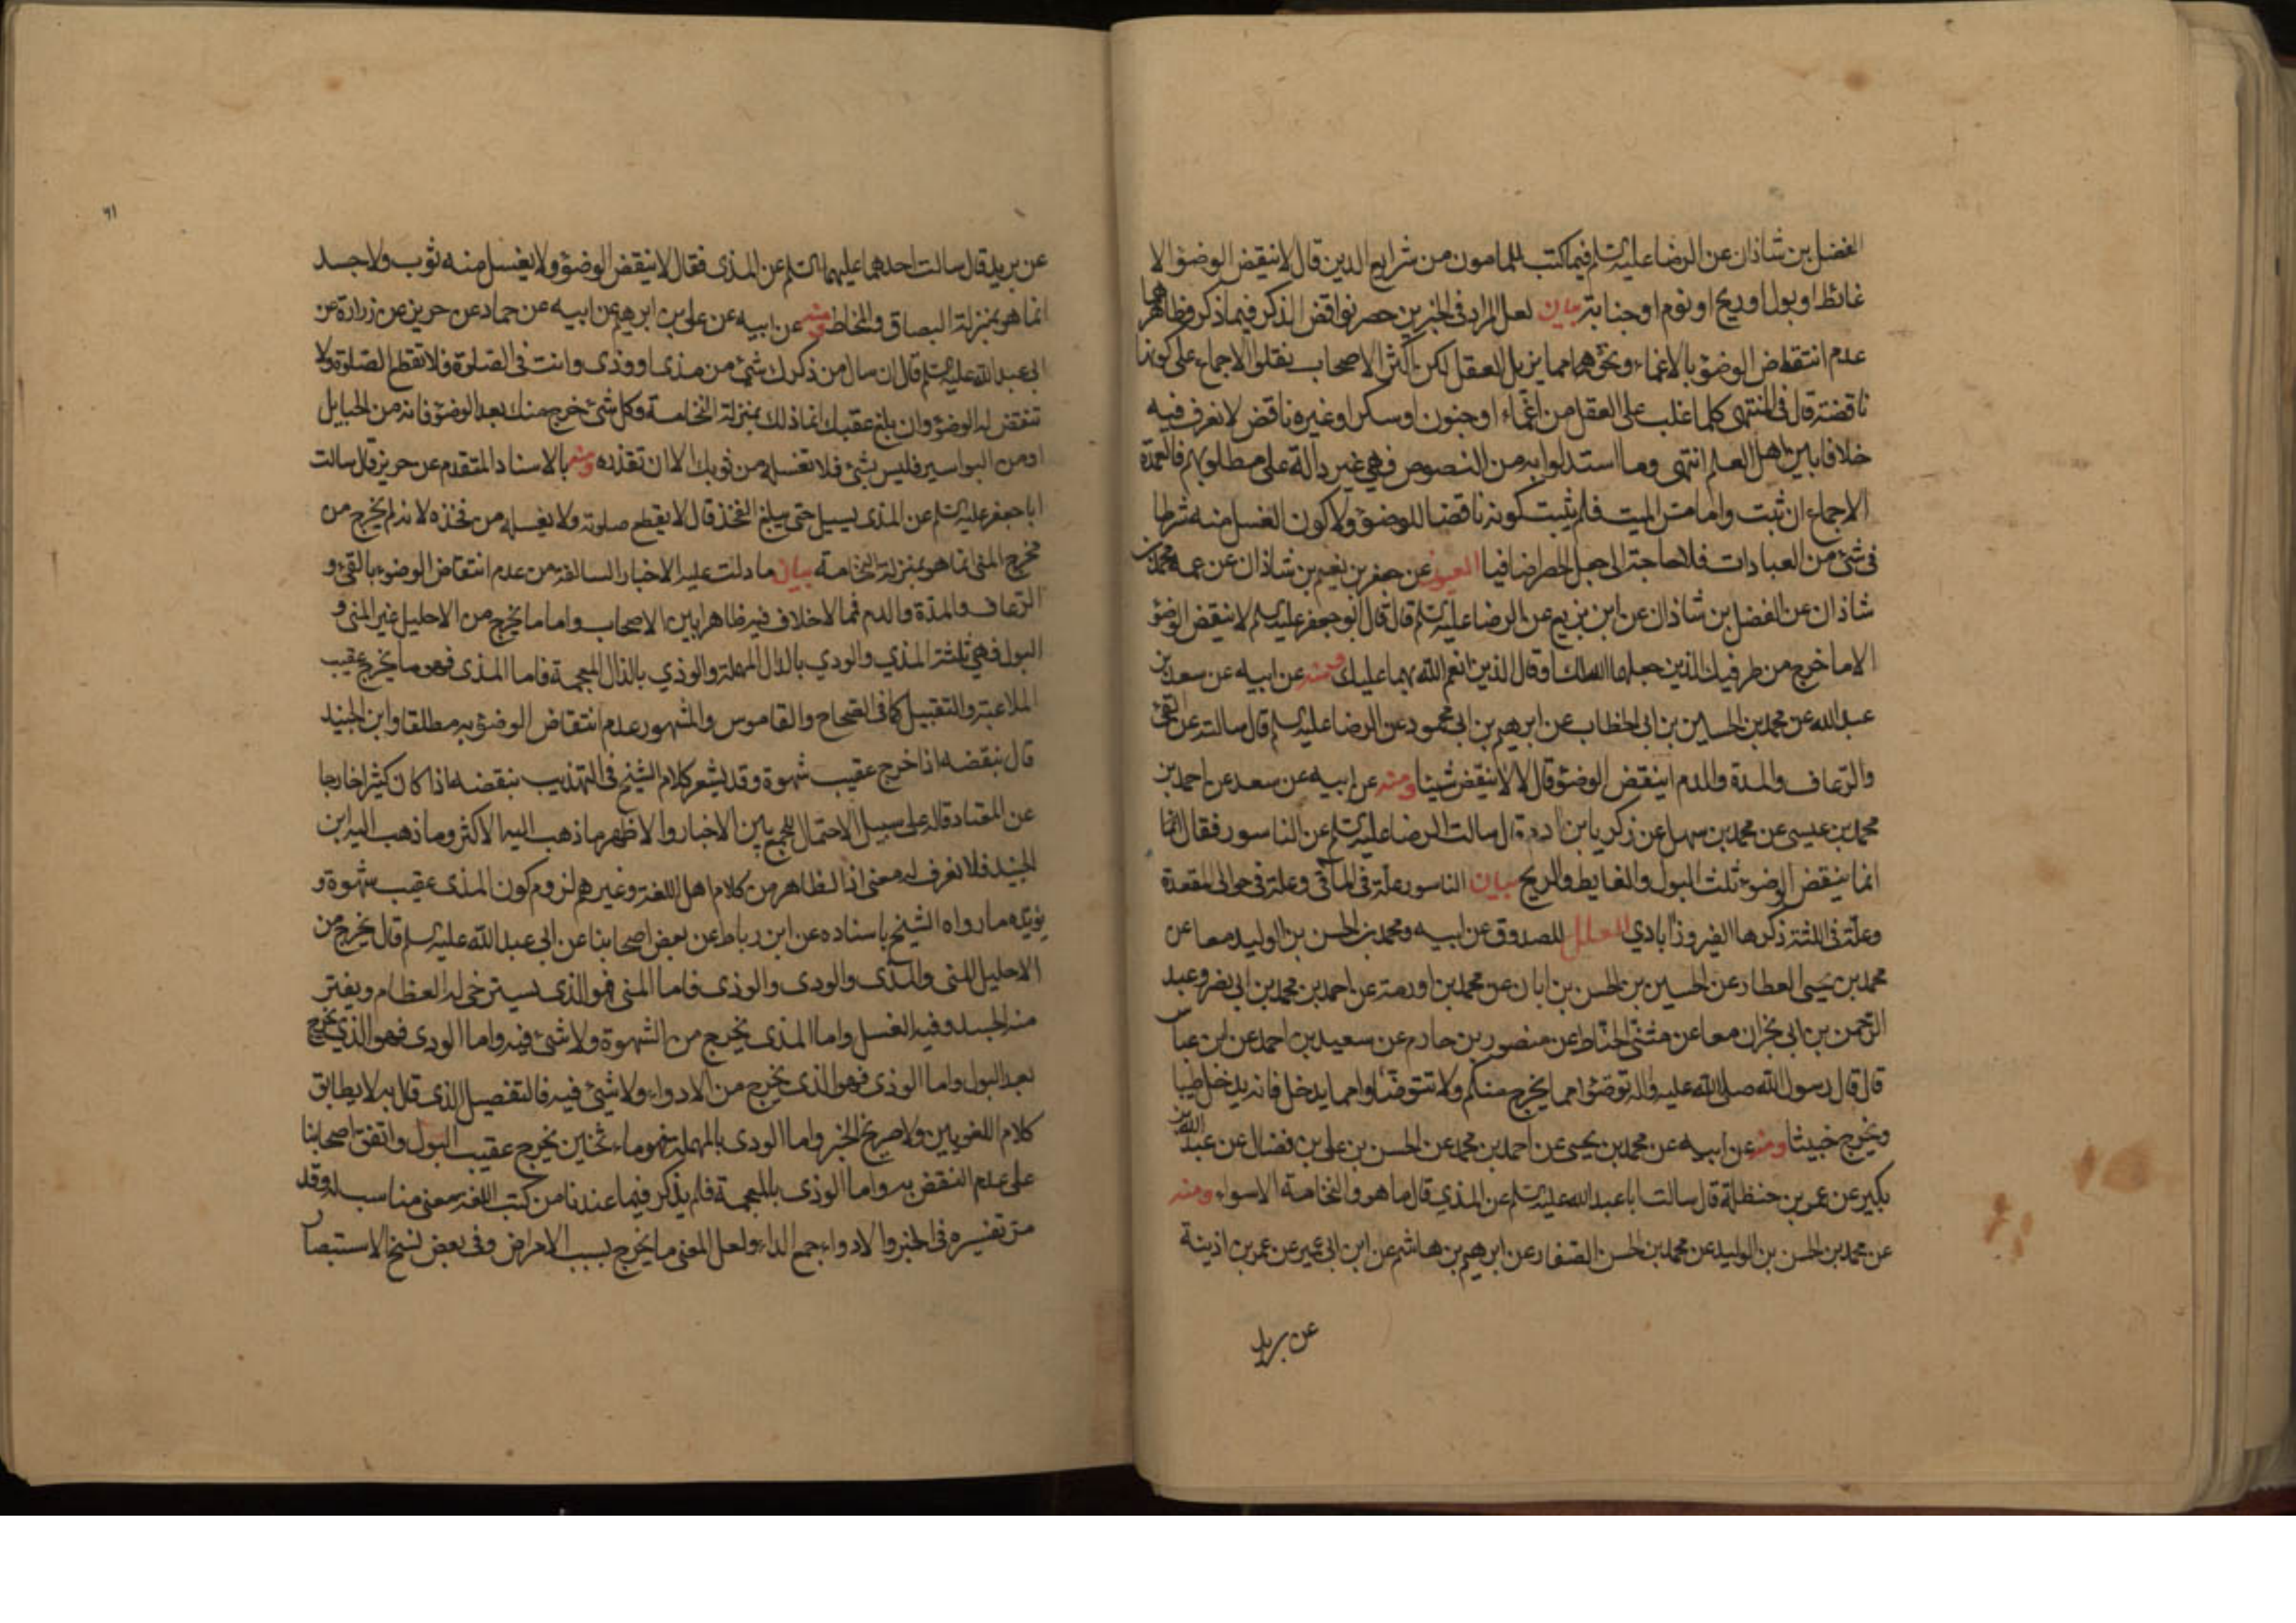 الفضل بن شاذان عن الرضا عليه السلم فيما كتب للمامون من شرايع الدين قال لا ينقض الوضوء الا
غائط او بول او ريح او نوم او جنابة بيان لعل المراد في الخبرين حصر نواقض الذكر فيما ذكر وظاهرهما
عدم انتقاض الوضوء بالاغماء ونحوهما مما يزيل العقل لكن اكثر الاصحاب نقلوا الاجماع على كونها
ناقضة قال في المنتهى كلما غلب على العقل من اغماء او جنون او سكر او غيره ناقض لا نعرف فيه
خلافا بين اهل العلم انتهى وما استدلوا به من النصوص فهي غير دالة على مطلوبهم فالعمدة
الاجماع ان ثبت واما مس الميت فلم يثبت كونه ناقضا للوضوء ولا كون الغسل منه شرطا
في شئ من العبادات فلا حاجة الى جعل الحصر اضافيا العيون عن جعفر بن نعيم بن شاذان عن عمه محمد بن
شاذان عن الفضل بن شاذان عن ابن بزيع عن الرضا عليه السلم قال قال ابو جعفر عليه السلم لا ينقض الوضوء
الا ما خرج من طرفيك الذين جعلهما الله لك او قال الذين انعم الله بهما عليك ومنه عن ابيه عن سعد بن
عبد الله عن محمد بن الحسين بن ابي الخطاب عن ابرهيم بن ابي محمود عن الرضا عليه السلم قال سالته عن القئ
والرعاف والمدة والدم اينقض الوضوء قال لا لا ينقض شيئا ومنه عن ابيه عن سعد عن احمد بن
محمد بن عيسى عن محمد بن سهل عن زكريا بن ادم قال سالت الرضا عليه السلم عن الناسور فقال انما
انما ينقض الوضوء ثلث البول والغايط والريح بيان الناسور علة في المآقي وعلة في حوالى المقعدة
وعلة في اللثة ذكرها الفيروزآبادي العلل للصدوق عن ابيه ومحمد بن الحسن بن الوليد معا عن
محمد بن يحيى العطار عن الحسين بن الحسن بن ابان عن محمد بن اورمة عن احمد بن محمد بن ابي نصر وعبد
الرحمن بن ابي نجران معا عن مثنى الحناط عن منصور بن حازم عن سعيد بن احمد عن ابن عباس
قال قال رسول الله صلى الله عليه واله توضؤا مما يخرج منكم ولا تتوضؤا مما يدخل فانه يدخل طيبا
ويخرج خبيثا ومنه عن ابيه عن محمد بن يحيى عن احمد بن محمد عن الحسن بن على بن فضال عن عبد الله بن
بكير عن عمر بن حنظلة قال سالت ابا عبد الله عليه السلم عن المذي قال ما هو والنخامة الا سواء ومنه
عن محمد بن الحسن بن الوليد عن محمد بن الحسن الصفار عن ابرهيم بن هاشم عن ابن ابي عمير عن عمر بن اذينة
عن بريد
٦١
عن بريد قال سالت احدهما عليهما السلم عن المذى فقال لا ينقض الوضوء ولا يغسل منه ثوب ولا جسد
انما هو بمنزلة البصاق والمخاط ومنه عن ابيه عن على بن ابرهيم عن ابيه عن حماد عن حريز عن زرارة عن
ابي عبد الله عليه السلم قال ان سال من ذكرك شئ من مذى او وذى وانت في الصلوة فلا تقطع الصلوة ولا
تنقض له الوضوء وان بلغ عقبك انما ذلك بمنزلة النخامة وكل شئ خرج منك بعد الوضوء فانه من الحبايل
او من البواسير فليس بشئ فلا تغسله من ثوبك الا ان تقذره ومنه بالاسناد المتقدم عن حريز قال سالت
ابا جعفر عليه السلم عن المذى يسيل حتى يبلغ الفخذ قال لا يقطع صلوته ولا يغسله من فخذه لانه لم يخرج من
مخرج المنى انما هو بمنزلة النخامة بيان ما دلت عليه الاخبار السالفة من عدم انتقاض الوضوء بالقئ و
الرعاف والمدة والدم فما لا خلاف فيه ظاهرا بين الاصحاب واما ما يخرج من الاحليل غير المنى و
البول فهي ثلثة المذي والودي بالدال المهملة والوذي بالذال المعجمة فاما المذى فهو ما يخرج عقيب
الملاعبة والتقبيل كما في الصحاح والقاموس والمشهور عدم انتقاض الوضوء به مطلقا وابن الجنيد
قال بنقضه اذا خرج عقيب شهوة وقد يشعر كلام الشيخ في التهذيب بنقضه اذا كان كثيرا خارجا
عن المعتاد قاله على سبيل الاحتمال للجمع بين الاخبار والاظهر ما ذهب اليه الاكثر وما ذهب اليه ابن
الجنيد فلا نعرف له معنى اذ الظاهر من كلام اهل اللغة وغيرهم لزوم كون المذى عقيب شهوة و
يؤيده ما رواه الشيخ باسناده عن ابن رباط عن بعض اصحابنا عن ابي عبد الله عليه السلم قال يخرج من
الاحليل المنى والمذى والودى والوذى فاما المنى فهو الذى يسترخى له العظام ويفتر
منه الجسد وفيه الغسل واما المذى يخرج من الشهوة ولا شئ فيه واما الودى فهو الذي يخرج
بعد البول واما الوذى فهو الذى يخرج من الادواء ولا شئ فيه فالتفصيل الذى قال به لا يطابق
كلام اللغويين ولا صريح الخبر واما الودى بالمهملة فهو ماء ثخين يخرج عقيب البول واتفق اصحابنا
على عدم النقض به واما الوذى بالمعجمة فلم يذكر فيما عندنا من كتب اللغة معنى مناسب له وقد
مر تفسيره في الخبر والادواء جمع الداء ولعل المعنى ما يخرج بسبب الامراض وفي بعض نسخ الاستبصار